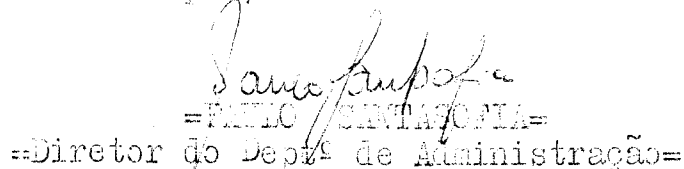 =PAULO SANTASOFIA=
=Diretor do Deptº de Administração=